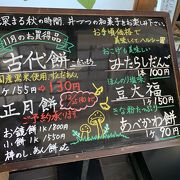 深まる秋の時間、丼一つの和菓子をお楽しみ下さい。
11月のお買得品
古代餅
国産黒米使用
1ヶ155円→130円
正月餅
ご予約承ります
お鏡餅 1K 1800円
小餅 1K 1550円
お手頃価格で
美味しくてヘルシー
おこげも美味しい
みたらしだんご
1本100円
ほんのり塩味
豆大福
1ヶ150円
きな粉たっぷり
あべかわ餅
1ヶ90円